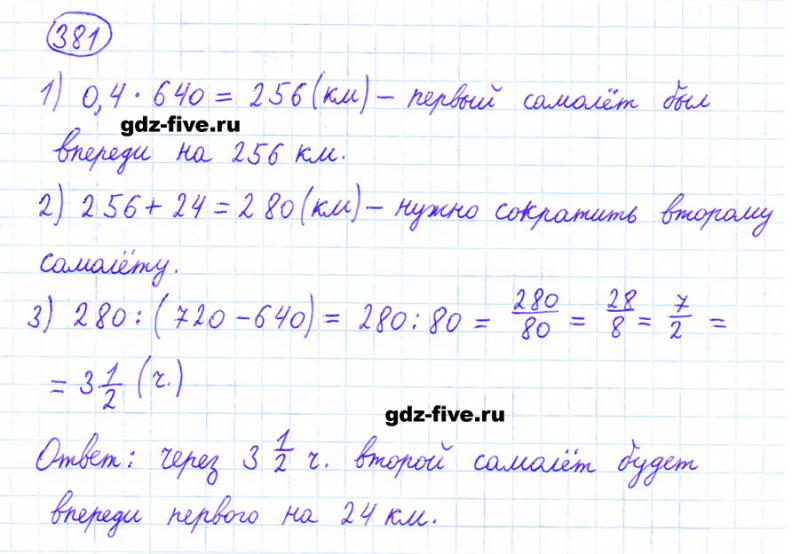 381
1) 0,4 · 640 = 256 (км) – первый самолёт был
gdz-five.ru
впереди на 256 км.
2) 256 + 24 = 280 (км) – нужно сократить второму
самолёту.
3) 280 : (720 – 640) = 280 : 80 = 280/80 = 28/8 = 7/2 =
= 3 1/2 (ч.)
gdz-five.ru
Ответ: через 3 1/2 ч. второй самолёт будет
впереди первого на 24 км.